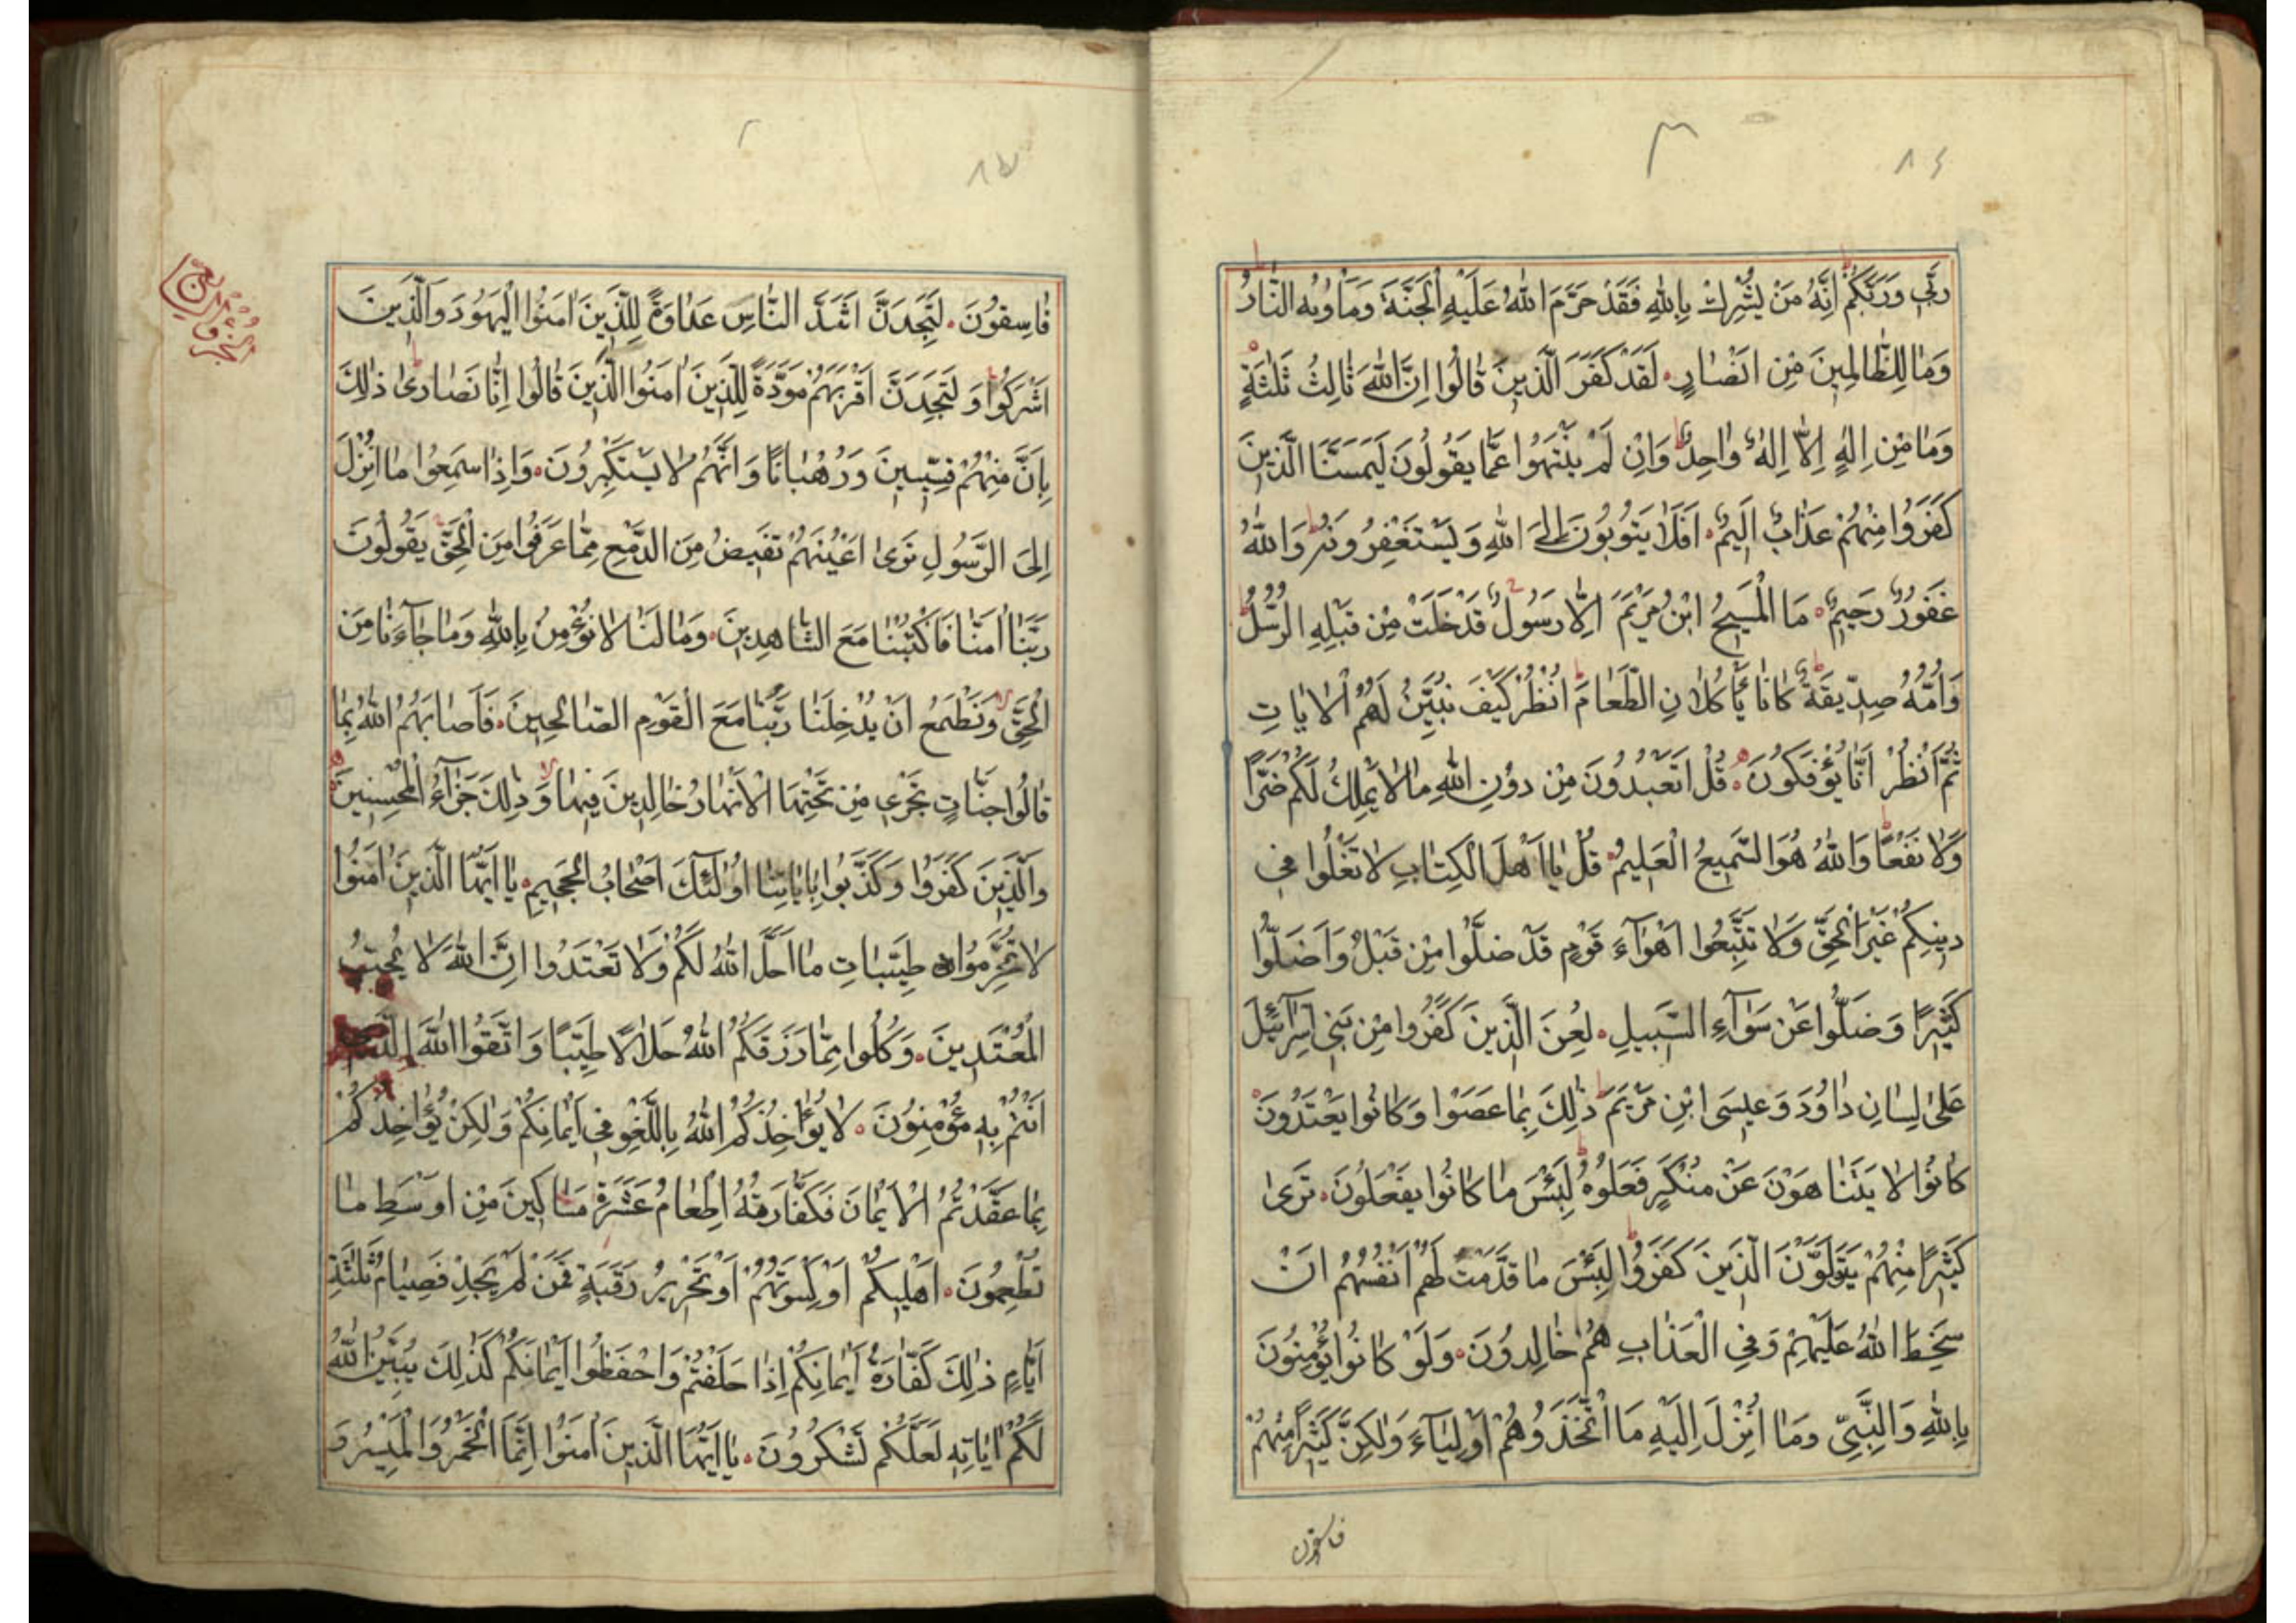 ٨٤
رَبِّي وَرَبَّكُمْ اِنَّهُ مَنْ يُشْرِكْ بِاللهِ فَقَدْ حَرَّمَ اللهُ عَلَيْهِ الْجَنَّةَ وَمَاْوٰيهُ النَّارُ
وَمَا لِلظَّالِمِينَ مِنْ اَنْصَارٍ لَقَدْ كَفَرَ الَّذِينَ قَالُوا اِنَّ اللهَ ثَالِثُ ثَلٰثَةٍ
وَمَا مِنْ اِلٰهٍ اِلَّا اِلٰهٌ وَاحِدٌ وَاِنْ لَمْ يَنْتَهُوا عَمَّا يَقُولُونَ لَيَمَسَّنَّ الَّذِينَ
كَفَرُوا مِنْهُمْ عَذَابٌ اَلِيمٌ اَفَلَا يَتُوبُونَ اِلَى اللهِ وَيَسْتَغْفِرُونَهُ وَاللهُ
غَفُورٌ رَحِيمٌ مَا الْمَسِيحُ ابْنُ مَرْيَمَ اِلَّا رَسُولٌ قَدْ خَلَتْ مِنْ قَبْلِهِ الرُّسُلُ
وَاُمُّهُ صِدِّيقَةٌ كَانَا يَأْكُلَانِ الطَّعَامَ اُنْظُرْ كَيْفَ نُبَيِّنُ لَهُمُ الْاٰيَاتِ
ثُمَّ انْظُرْ اَنّٰا يُؤْفَكُونَ قُلْ اَتَعْبُدُونَ مِنْ دُونِ اللهِ مَا لَا يَمْلِكُ لَكُمْ ضَرًّا
وَلَا نَفْعًا وَاللهُ هُوَ السَّمِيعُ الْعَلِيمُ قُلْ يَا اَهْلَ الْكِتَابِ لَا تَغْلُوا فِي
دِينِكُمْ غَيْرَ الْحَقِّ وَلَا تَتَّبِعُوا اَهْوَآءَ قَوْمٍ قَدْ ضَلُّوا مِنْ قَبْلُ وَاَضَلُّوا
كَثِيرًا وَضَلُّوا عَنْ سَوَآءِ السَّبِيلِ لُعِنَ الَّذِينَ كَفَرُوا مِنْ بَنِي اِسْرَآئِيلَ
عَلٰى لِسَانِ دَاوُدَ وَعِيسَى ابْنِ مَرْيَمَ ذٰلِكَ بِمَا عَصَوْا وَكَانُوا يَعْتَدُونَ
كَانُوا لَا يَتَنَاهَوْنَ عَنْ مُنْكَرٍ فَعَلُوهُ لَبِئْسَ مَا كَانُوا يَفْعَلُونَ تَرٰى
كَثِيرًا مِنْهُمْ يَتَوَلَّوْنَ الَّذِينَ كَفَرُوا لَبِئْسَ مَا قَدَّمَتْ لَهُمْ اَنْفُسُهُمْ اَنْ
سَخِطَ اللهُ عَلَيْهِمْ وَفِي الْعَذَابِ هُمْ خَالِدُونَ وَلَوْ كَانُوا يُؤْمِنُونَ
بِاللهِ وَالنَّبِيِّ وَمَا اُنْزِلَ اِلَيْهِ مَا اتَّخَذُوهُمْ اَوْلِيَآءَ وَلٰكِنَّ كَثِيرًا مِنْهُمْ
فاسقون
٨٥
فَاسِقُونَ لَتَجِدَنَّ اَشَدَّ النَّاسِ عَدَاوَةً لِلَّذِينَ اٰمَنُوا الْيَهُودَ وَالَّذِينَ
اَشْرَكُوا وَلَتَجِدَنَّ اَقْرَبَهُمْ مَوَدَّةً لِلَّذِينَ اٰمَنُوا الَّذِينَ قَالُوا اِنَّا نَصَارٰى ذٰلِكَ
بِاَنَّ مِنْهُمْ قِسِّيسِينَ وَرُهْبَانًا وَاَنَّهُمْ لَا يَسْتَكْبِرُونَ وَاِذَا سَمِعُوا مَا اُنْزِلَ
اِلَى الرَّسُولِ تَرٰى اَعْيُنَهُمْ تَفِيضُ مِنَ الدَّمْعِ مِمَّا عَرَفُوا مِنَ الْحَقِّ يَقُولُونَ
رَبَّنَا اٰمَنَّا فَاكْتُبْنَا مَعَ الشَّاهِدِينَ وَمَا لَنَا لَا نُؤْمِنُ بِاللهِ وَمَا جَآءَنَا مِنَ
الْحَقِّ وَنَطْمَعُ اَنْ يُدْخِلَنَا رَبُّنَا مَعَ الْقَوْمِ الصَّالِحِينَ فَاَصَابَهُمُ اللهُ بِمَا
قَالُوا جَنَّاتٍ تَجْرِي مِنْ تَحْتِهَا الْاَنْهَارُ خَالِدِينَ فِيهَا وَذٰلِكَ جَزَآءُ الْمُحْسِنِينَ
وَالَّذِينَ كَفَرُوا وَكَذَّبُوا بِاٰيَاتِنَا اُولٰئِكَ اَصْحَابُ الْجَحِيمِ يَا اَيُّهَا الَّذِينَ اٰمَنُوا
لَا تُحَرِّمُوا طَيِّبَاتِ مَا اَحَلَّ اللهُ لَكُمْ وَلَا تَعْتَدُوا اِنَّ اللهَ لَا يُحِبُّ
الْمُعْتَدِينَ وَكُلُوا مِمَّا رَزَقَكُمُ اللهُ حَلَالًا طَيِّبًا وَاتَّقُوا اللهَ الَّذِي
اَنْتُمْ بِهِ مُؤْمِنُونَ لَا يُؤَاخِذُكُمُ اللهُ بِاللَّغْوِ فِي اَيْمَانِكُمْ وَلٰكِنْ يُؤَاخِذُكُمْ
بِمَا عَقَّدْتُمُ الْاَيْمَانَ فَكَفَّارَتُهُ اِطْعَامُ عَشَرَةِ مَسَاكِينَ مِنْ اَوْسَطِ مَا
تُطْعِمُونَ اَهْلِيكُمْ اَوْ كِسْوَتُهُمْ اَوْ تَحْرِيرُ رَقَبَةٍ فَمَنْ لَمْ يَجِدْ فَصِيَامُ ثَلٰثَةِ
اَيَّامٍ ذٰلِكَ كَفَّارَةُ اَيْمَانِكُمْ اِذَا حَلَفْتُمْ وَاحْفَظُوا اَيْمَانَكُمْ كَذٰلِكَ يُبَيِّنُ اللهُ
لَكُمْ اٰيَاتِهِ لَعَلَّكُمْ تَشْكُرُونَ يَا اَيُّهَا الَّذِينَ اٰمَنُوا اِنَّمَا الْخَمْرُ وَالْمَيْسِرُ وَ